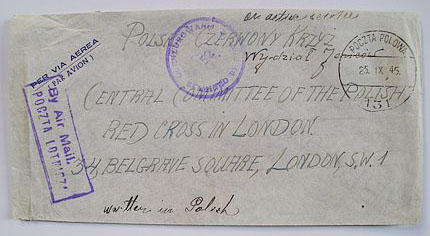 on active service
POLSKI CZERWONY KRZYŻ
Wydział
PER VIA AEREA
(PAR AVION)
By Air Mail.
POCZTA LOTNICZA
POCZTA POLOWA
25. IX 45.
131
CENTRAL COMMITTEE OF THE POLISH
RED CROSS IN LONDON.
34, BELGRAVE SQUARE, LONDON, S.W.1
written in Polish